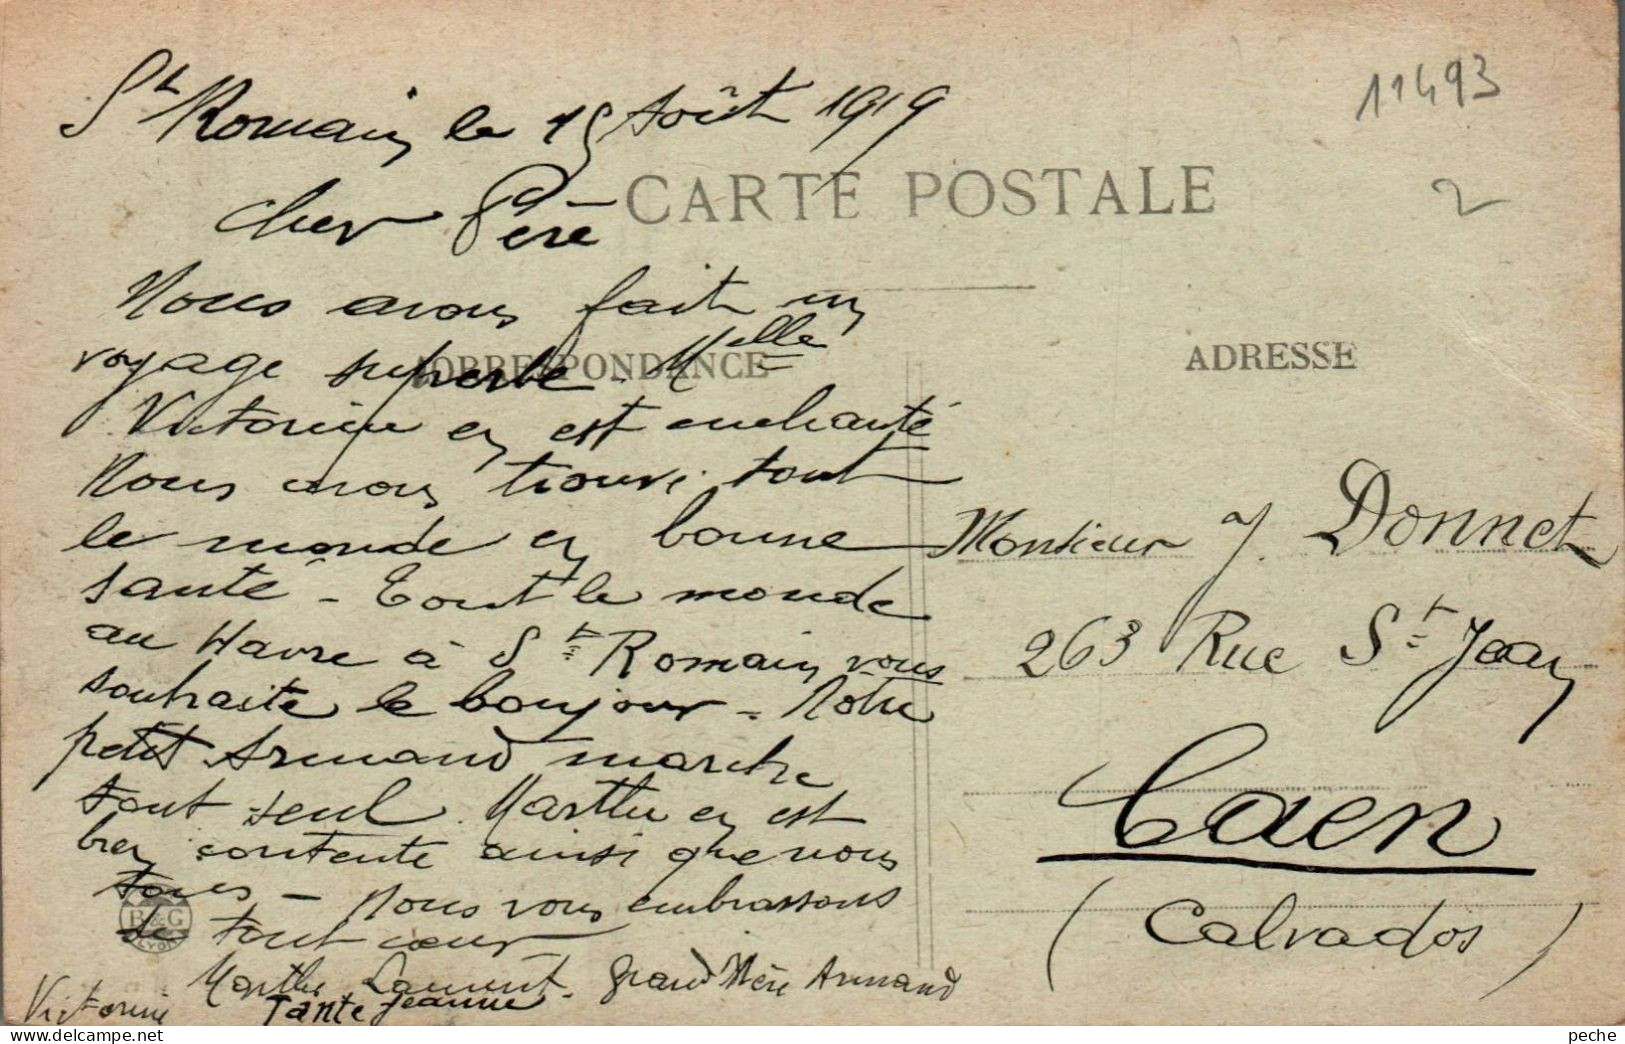 11493
2
St Romain le 15 Août 1919
CARTE POSTALE
cher Père
Nous avons fait un
voyage superbe - Melle
CORRESPONDANCE
ADRESSE
Victorine en est enchanté
Nous avons trouvé tout
le monde en bonne
santé - Tout le monde
au Havre à St Romain vous
souhaite le bonjour - Notre
petit Armand marche
tout seul. Marthe en est
bien contente ainsi que nous
tous - Nous vous embrassons
de tout cœur
Marthe Laurent - Grand Mère Armand
Victorine Tante Jeanne
B&G
LYON
Monsieur J. Donnet
263 Rue St Jean
Caen
(Calvados)
peche